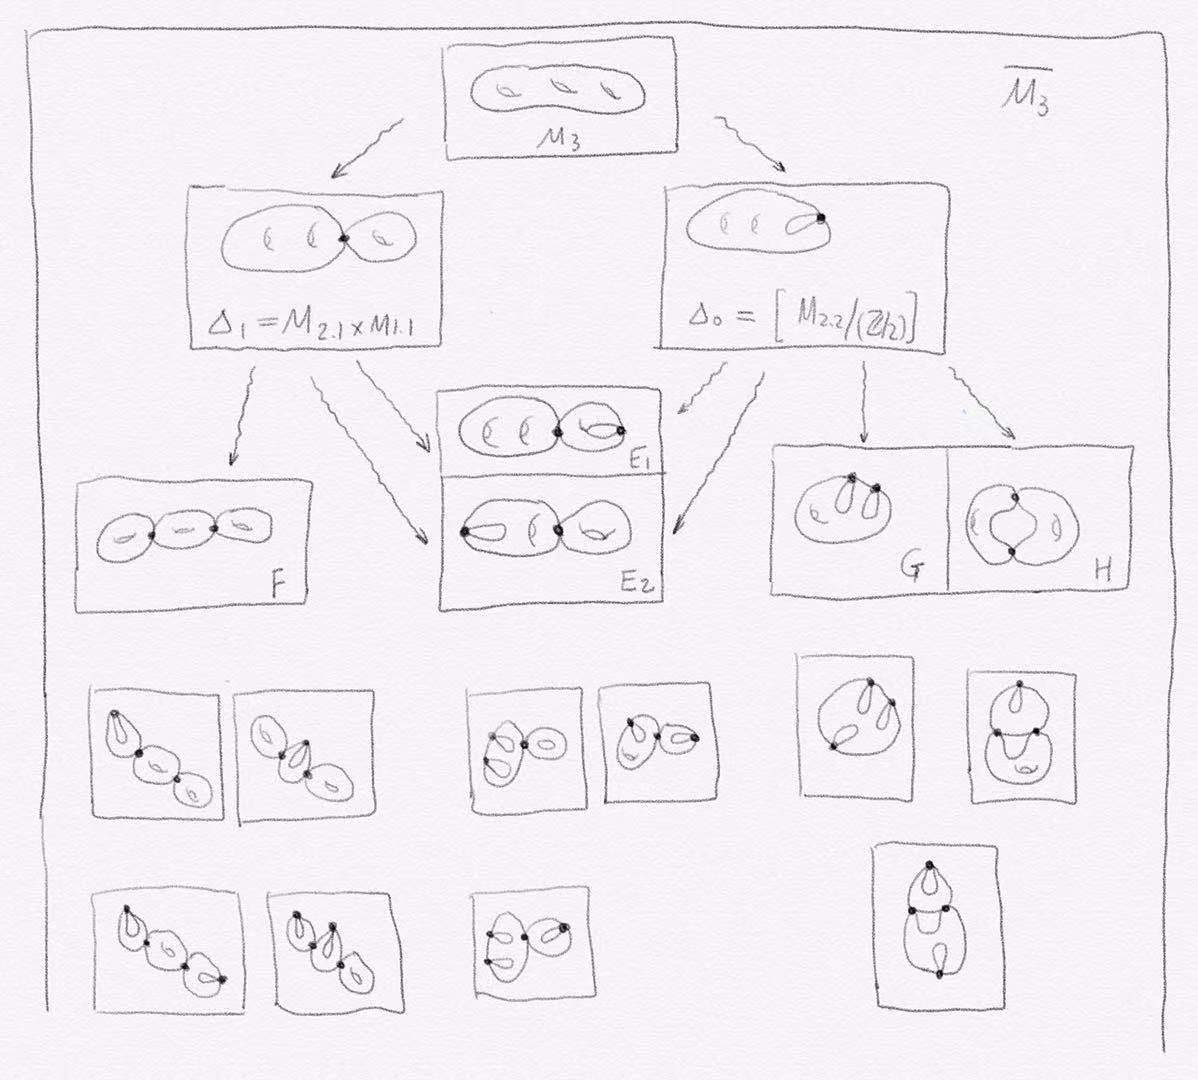 M̅₃
M₃
Δ₁ = M₂.₁ × M₁.₁
Δ₀ = [M₂.₂/(Z/2)]
E₁
F
E₂
G
H